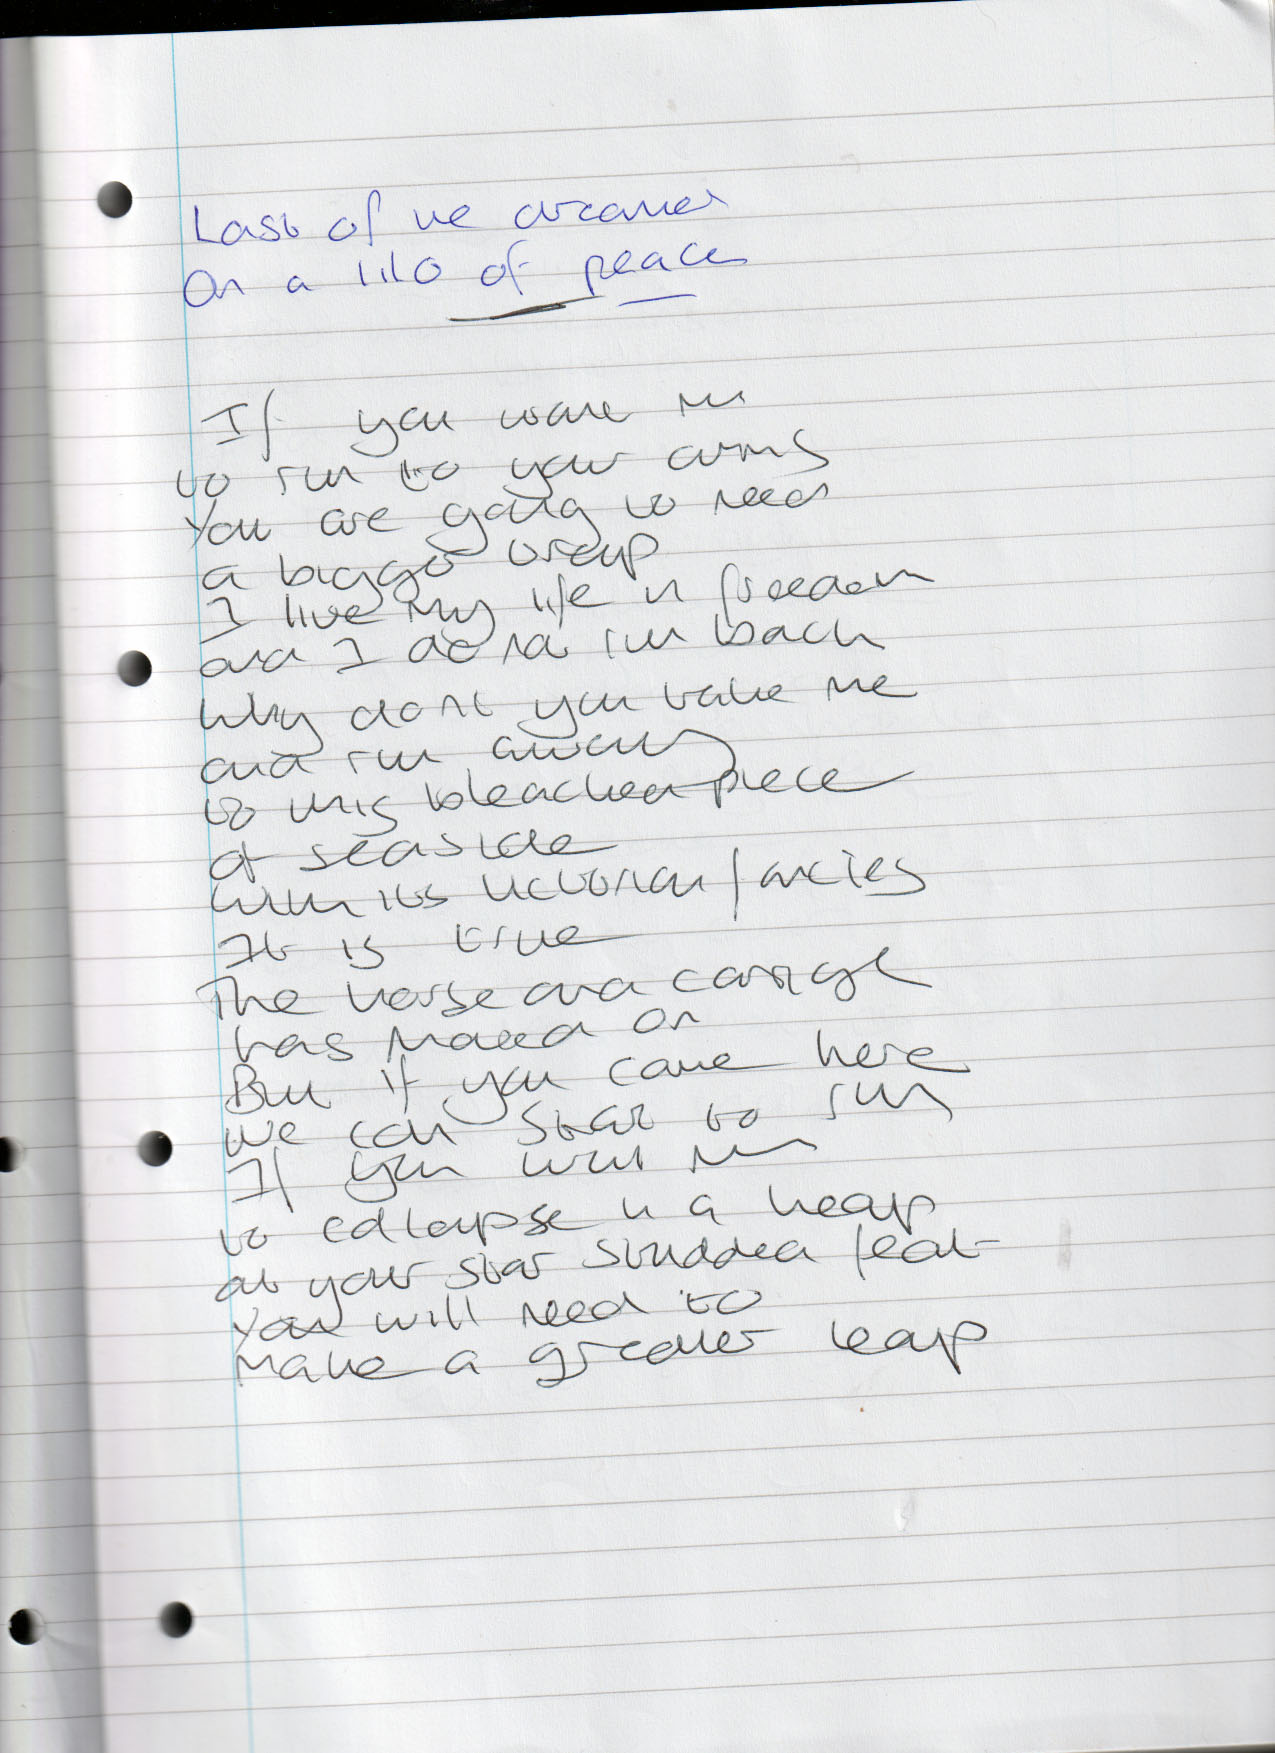 Last of the dreamer
On a lilo of peace
If you want me
to run to your arms
You are going to need
a bigger
I live my life in freedom
and I do not run back
Why dont you take me
and run away
to this bleached piece
of seaside
With its Victorian fancies
It is true
The horse and carriage
has moved on
But if you come here
we can start to run
If you want me
to collapse in a heap
at your star studded feet
You will need to
Make a greater leap